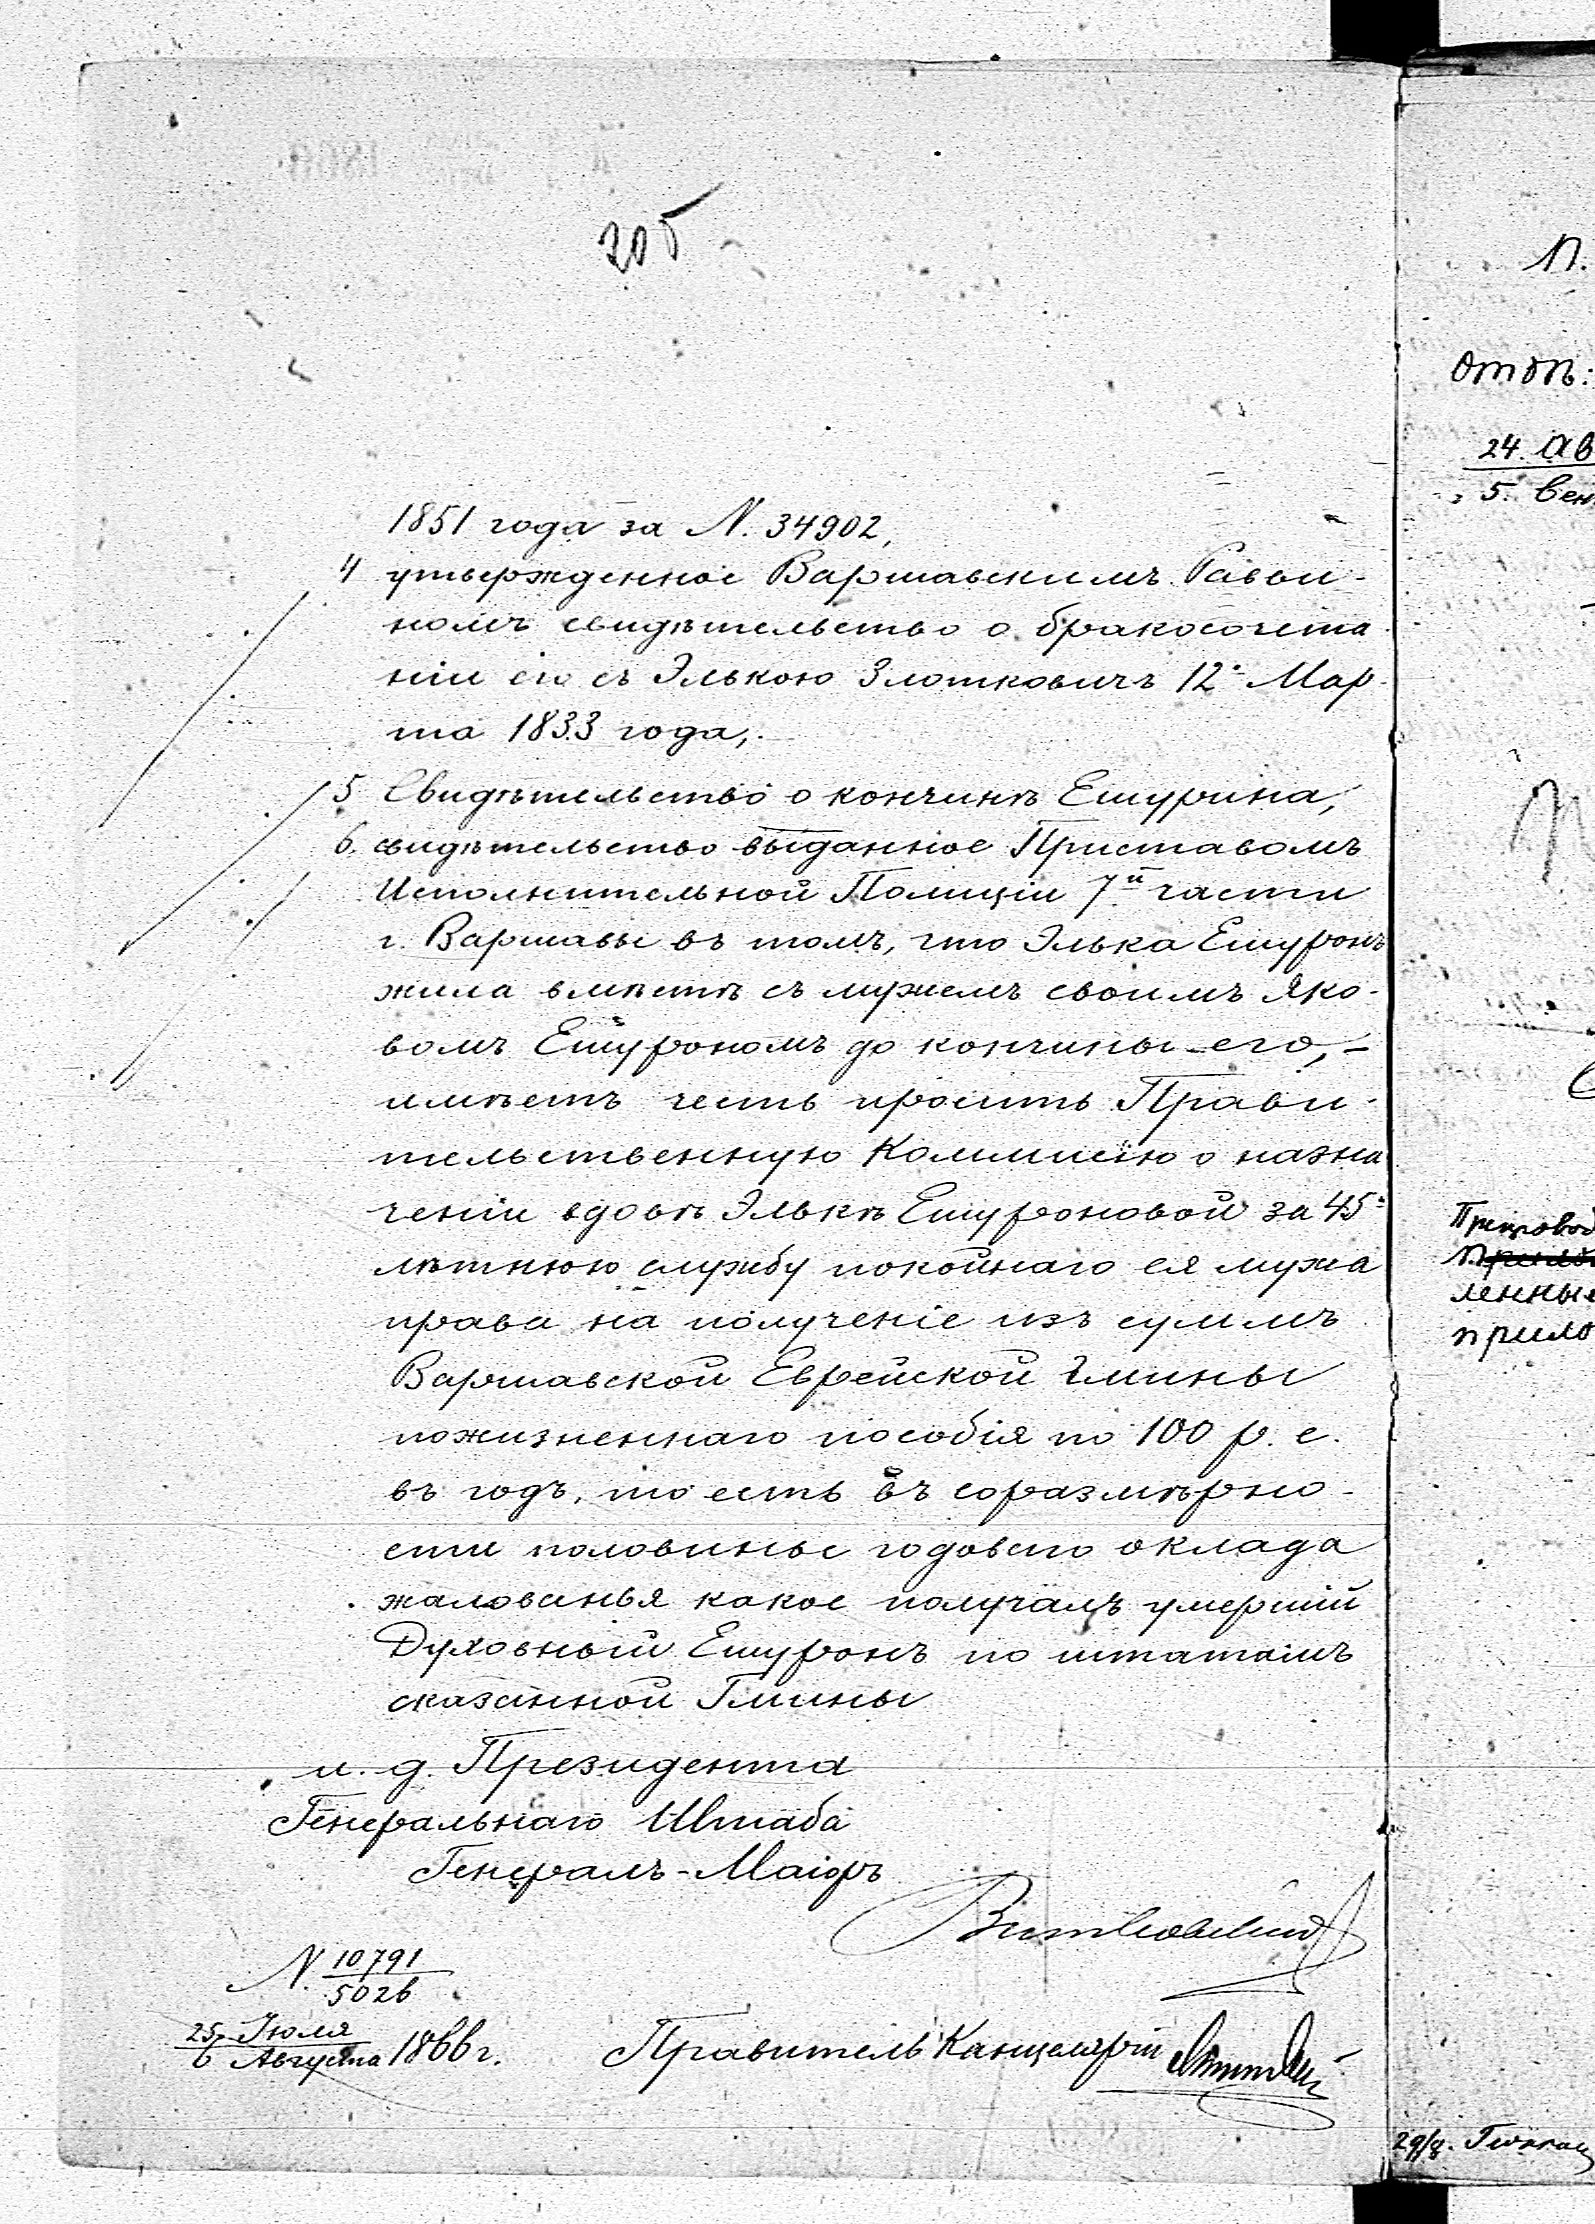 205
1851 года за N. 34902,
4 утвержденное Варшавскимъ Равви-
номъ свидѣтельство о бракосочета
ніи его съ Элькою Злотковичъ 12 Мар-
та 1833 года,
5 Свидѣтельство о кончинѣ Ешурина,
6. свидѣтельство выданное Приставомъ
Исполнительной Полиціи 7й части
г. Варшавы въ томъ, что Элька Ешуронъ
жила вмѣстѣ съ мужемъ своимъ Яко-
вомъ Ешурономъ до кончины его, -
имѣетъ честь просить Прави-
тельственную Коммисію о назна
ченіи вдовѣ Элькѣ Ешуроновой за 45-
лѣтнюю службу покойнаго ея мужа
права на полученіе изъ суммъ
Варшавской Еврейской Гмины
пожизненнаго пособія по 100 р. с.
въ годъ, то есть въ соразмѣрно-
сти половины годоваго оклада
жалованья какое получалъ умершій
Духовный Ешуронъ по штатамъ
сказанной Гмины
и. д. Президента
Генеральнаго Штаба
Генералъ-Маіоръ
Витковскій
N. 10791
5026
25 Іюля
6 Августа 1866 г.
Правитель Канцеляріи
П.
отпъ:
24. ав
5. Сен
ленные
прило